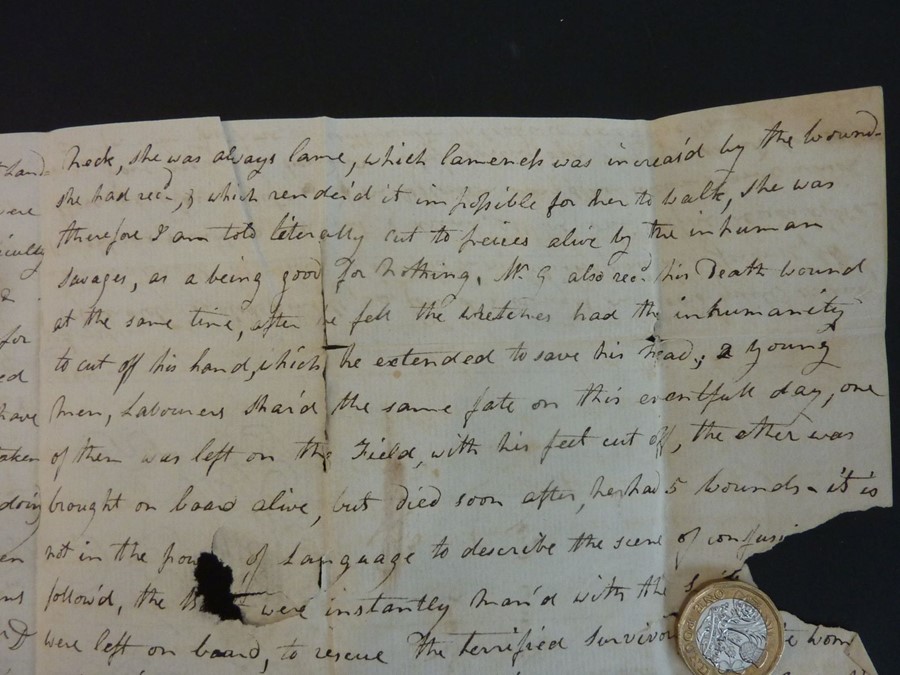 hand neck, she was always lame, which lameness was increas'd by the wound-
were she had recd, & which rende'd it impossible for her to walk, she was
therefore I am told literally cut to peices alive by the inhuman
& savages, as a being good for nothing. Mr G also recd his Death wound
at the same time, after he fell the wretches had the inhumanity
for to cut off his hand, which he extended to save his head; 2 young
ed men, Labourers shar'd the same fate on this eventfull day, one
have of them was left on the Field, with his feet cut off, the other was
taken brought on board alive, but died soon after, he had 5 wounds - it is
doing not in the pow of Language to describe the scene of confusi
en follow'd, the B were instantly man'd with the
were left on board, to rescue the terrified Survivor